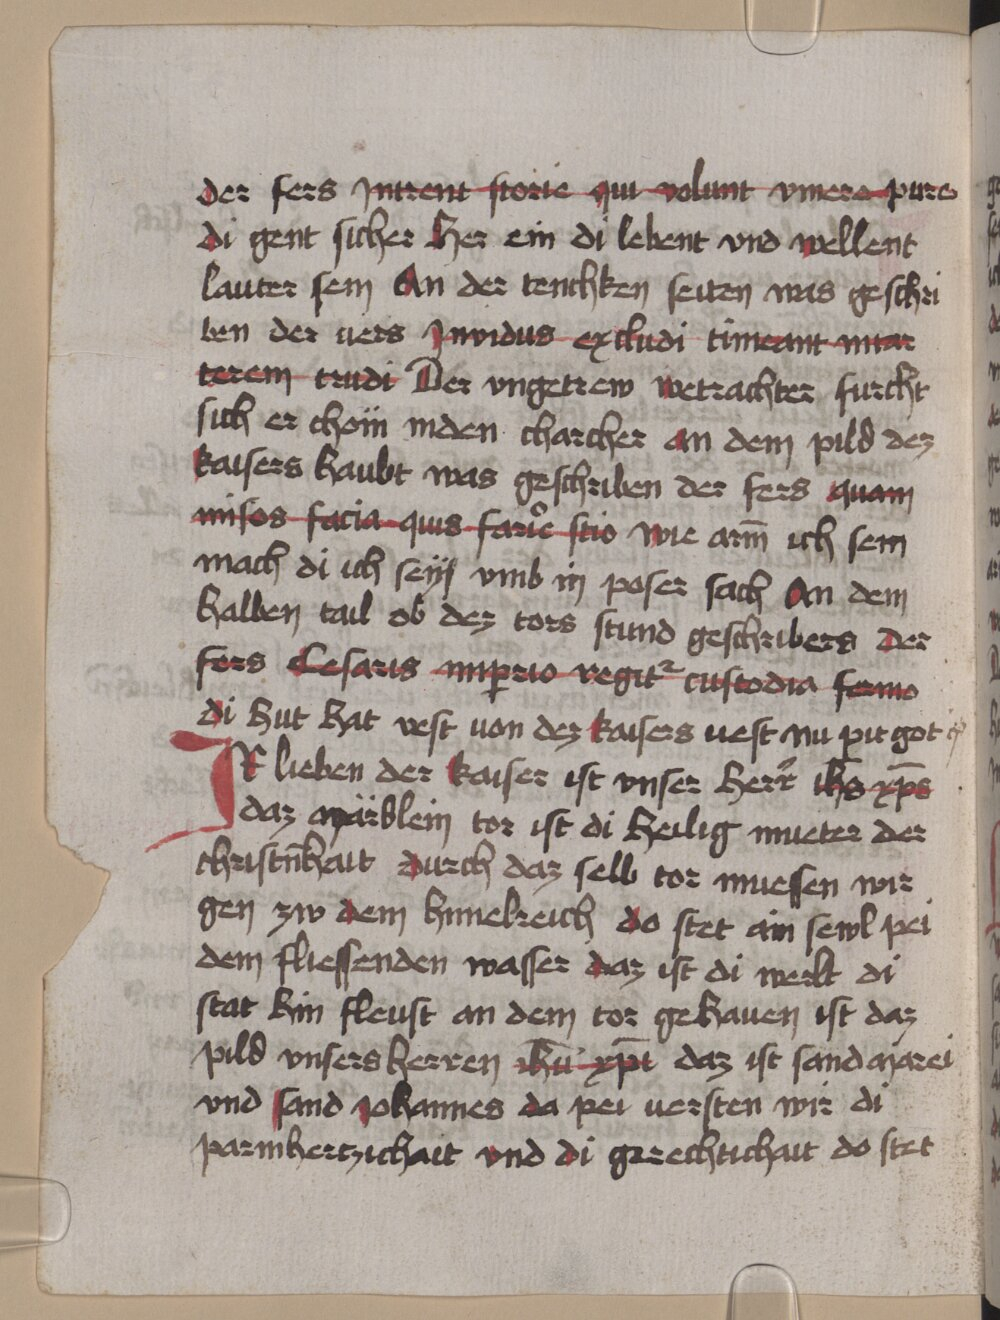 der fers Intrent storie qui volunt vmere pure
di gent sicher her ein di lebent vnd wellent
lauter sein An der tenchken seiten was geschri
ben der uers Invidus excludi timeant mtar
terem trudi Der vngetrew wetrachter furcht
sich er chöm inden charcher an dem pild dez
kaisers haubt was geschriben der fers quam
misos facia quis stio wie arm̄ ich sein
mach di ich seiJ vmb in poser sach An dem
halben tail ob dez tors stund geschribers Der
fers Cesaris imperio regit custodia
di hut hat vest von dez kaisers uest nu pit got
IR lieben der kaiser ist vnser herr ihs xp̄s
daz märblein tor ist di heilig mueter der
christn̄hait durch daz selb tor muessen wir
gen zw dem himelreich do stet ain sewl pei
dem fliessenden wasser daz ist di werlt di
stat hin fleust an dem tor gehauen ist daz
pild vnsers herren ihū xp̄i daz ist sand marei
vnd sand iohannes da pei uersten wir di
parmhertzichait vnd di grechtichait do stet